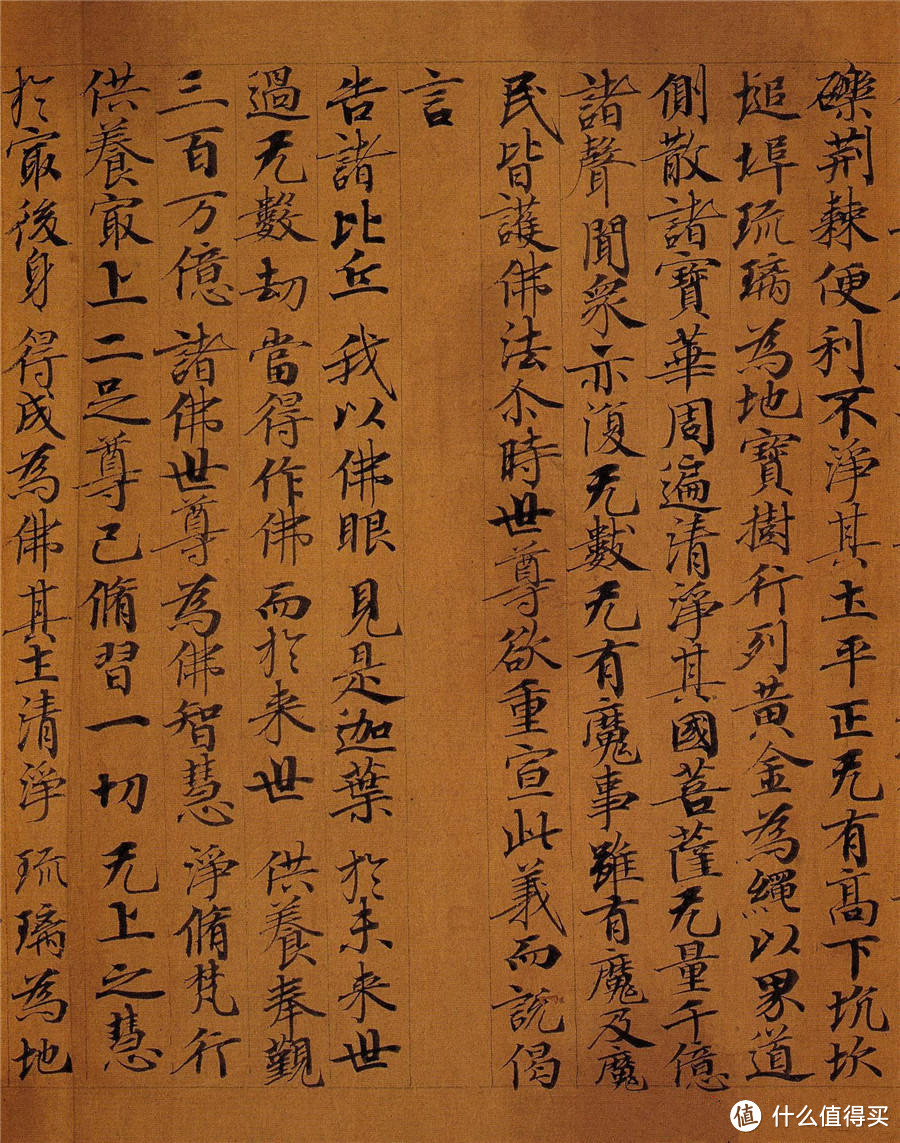 礫荆棘便利不淨其土平正无有高下坑坎
塠埠琉璃為地寶樹行列黃金為繩以界道
側散諸寶華周遍清淨其國菩薩无量千億
諸聲聞衆亦復无數无有魔事雖有魔及魔
民皆護佛法尒時世尊欲重宣此義而說偈
言
告諸比丘 我以佛眼 見是迦葉 於未來世
過无數劫 當得作佛 而於来世 供養奉覲
三百万億 諸佛世尊 為佛智慧 淨脩梵行
供養㝡上 二足尊已 脩習一切 无上之慧
於㝡後身 得成為佛 其土清淨 琉璃為地
值 什么值得买